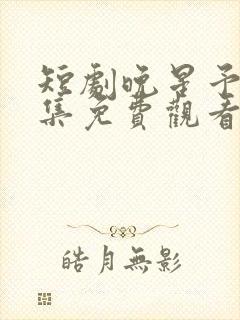 短劇晚星予
集免費觀看
皓月無影